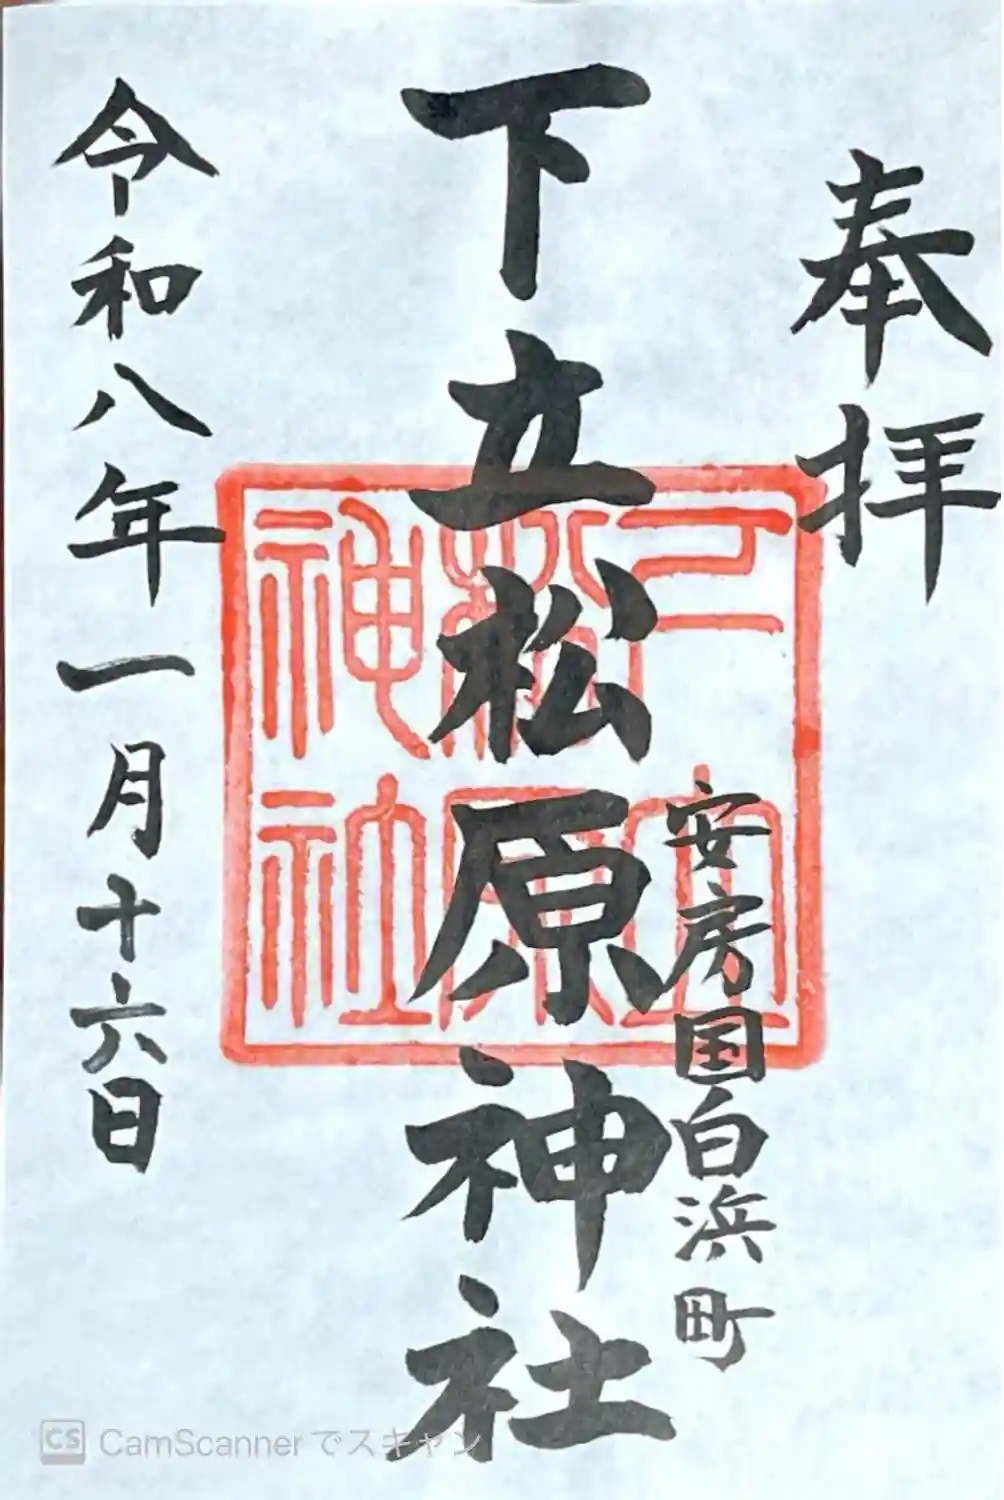 奉拝
安房国白浜町
下立松原神社
令和八年一月十六日
下立松原神社
CS CamScanner でスキャン